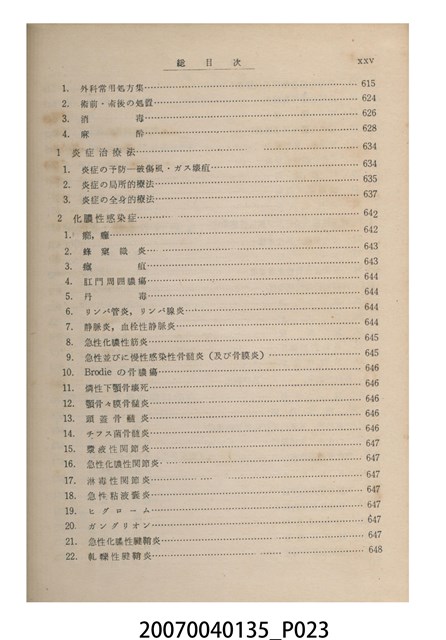 総目次 xxv
1. 外科常用処方集 615
2. 術前・術後の処置 624
3. 消毒 626
4. 麻酔 628
1 炎症治療法 634
1. 炎症の予防―破傷風・ガス壊疽 634
2. 炎症の局所的療法 635
3. 炎症の全身的療法 637
2 化膿性感染症 642
1. 癤，癰 642
2. 蜂窠織炎 643
3. 瘭疽 643
4. 肛門周囲膿瘍 644
5. 丹毒 644
6. リンパ管炎，リンパ腺炎 644
7. 静脈炎，血栓性静脈炎 644
8. 急性化膿性筋炎 645
9. 急性並びに慢性感染性骨髄炎（及び骨膜炎） 645
10. Brodie の骨膿瘍 646
11. 燐性下顎骨壊死 646
12. 顎骨々膜骨髄炎 646
13. 頭蓋骨髄炎 646
14. チフス菌骨髄炎 646
15. 漿液性関節炎 647
16. 急性化膿性関節炎 647
17. 淋毒性関節炎 647
18. 急性粘液嚢炎 647
19. ヒグローム 647
20. ガングリオン 647
21. 急性化膿性腱鞘炎 647
22. 軋轢性腱鞘炎 648
20070040135_P023